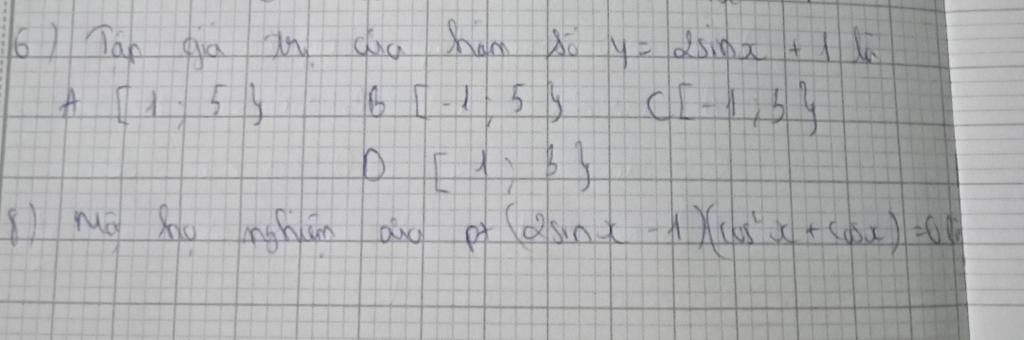 6) Tập giá trị của hàm số y = 2sinx + 1 là
A [1; 5} B [-1; 5} C [-1; 3}
D [1; 3}
8) Một họ nghiệm của pt (2sinx - 1)(cos²x + cosx) = 0 là